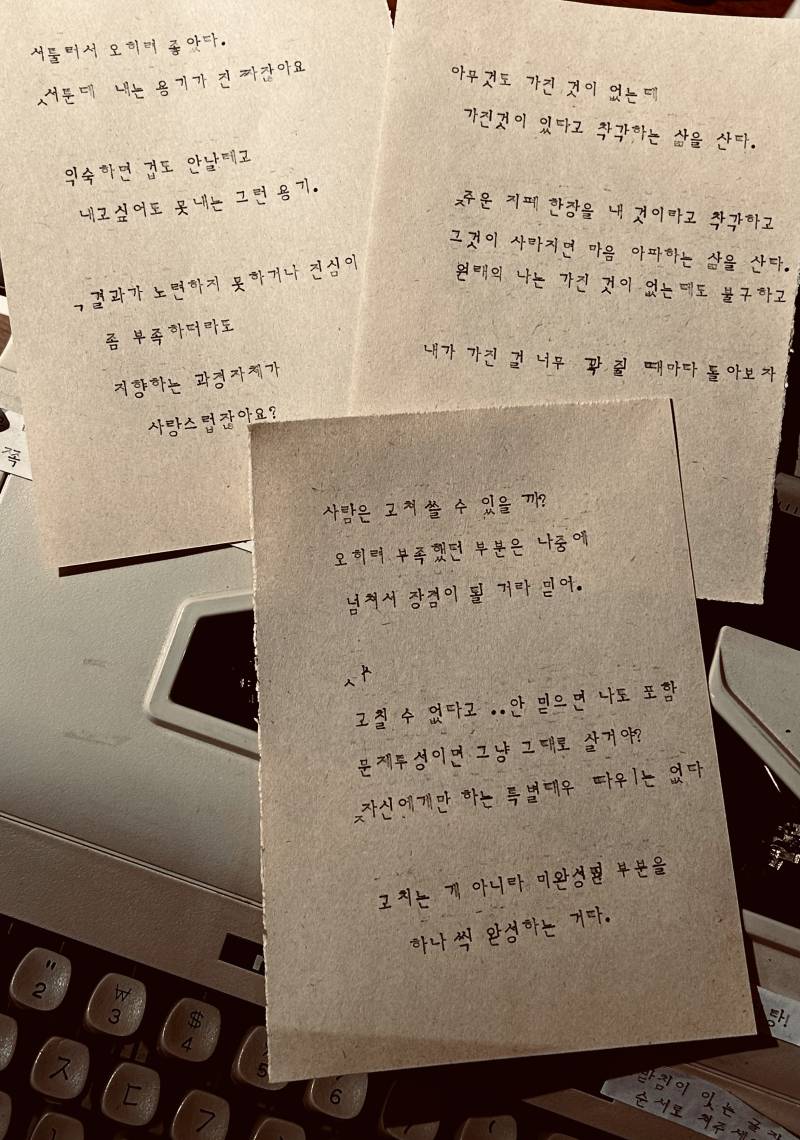 서툴러서 오히려 좋았다.
서툰데 내는 용기가 진짜잖아요
익숙하면 겁도 안날테고
내고싶어도 못 내는 그런 용기.
결과가 노련하지 못하거나 진심이
좀 부족하더라도
지향하는 과정자체가
사랑스럽잖아요?
아무것도 가진 것이 없는데
가진것이 있다고 착각하는 삶을 산다.
주운 지폐 한장을 내 것이라고 착각하고
그것이 사라지면 마음 아파하는 삶을 산다.
원래의 나는 가진 것이 없는데도 불구하고
내가 가진 걸 너무 꽉 쥘 때마다 돌아보자
사람은 고쳐 쓸 수 있을까?
오히려 부족했던 부분은 나중에
넘쳐서 장점이 될 거라 믿어.
고칠 수 없다고 ..안 믿으면 나도 포함
문제투성이면 그냥 그대로 살거야?
자신에게만 하는 특별대우 따위는 없다
고치는 게 아니라 미완성될 부분을
하나 씩 완성하는 거다.
쪽
" 2
₩ 3
$ 4
5
6
ㅈ
ㄷ
ㄱ
탕!
받침이 있는 글자
순서로 쳐주세